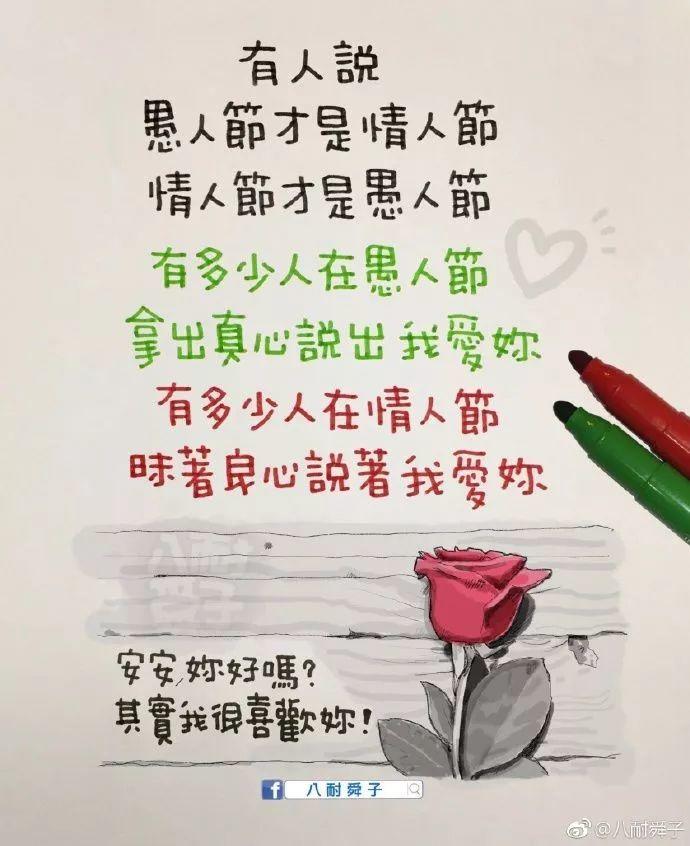 有人說
愚人節才是情人節
情人節才是愚人節
有多少人在愚人節
拿出真心說出我愛妳
有多少人在情人節
昧著良心說著我愛妳
安安,妳好嗎?
其實我很喜歡妳!
八耐舜子
@八耐舜子